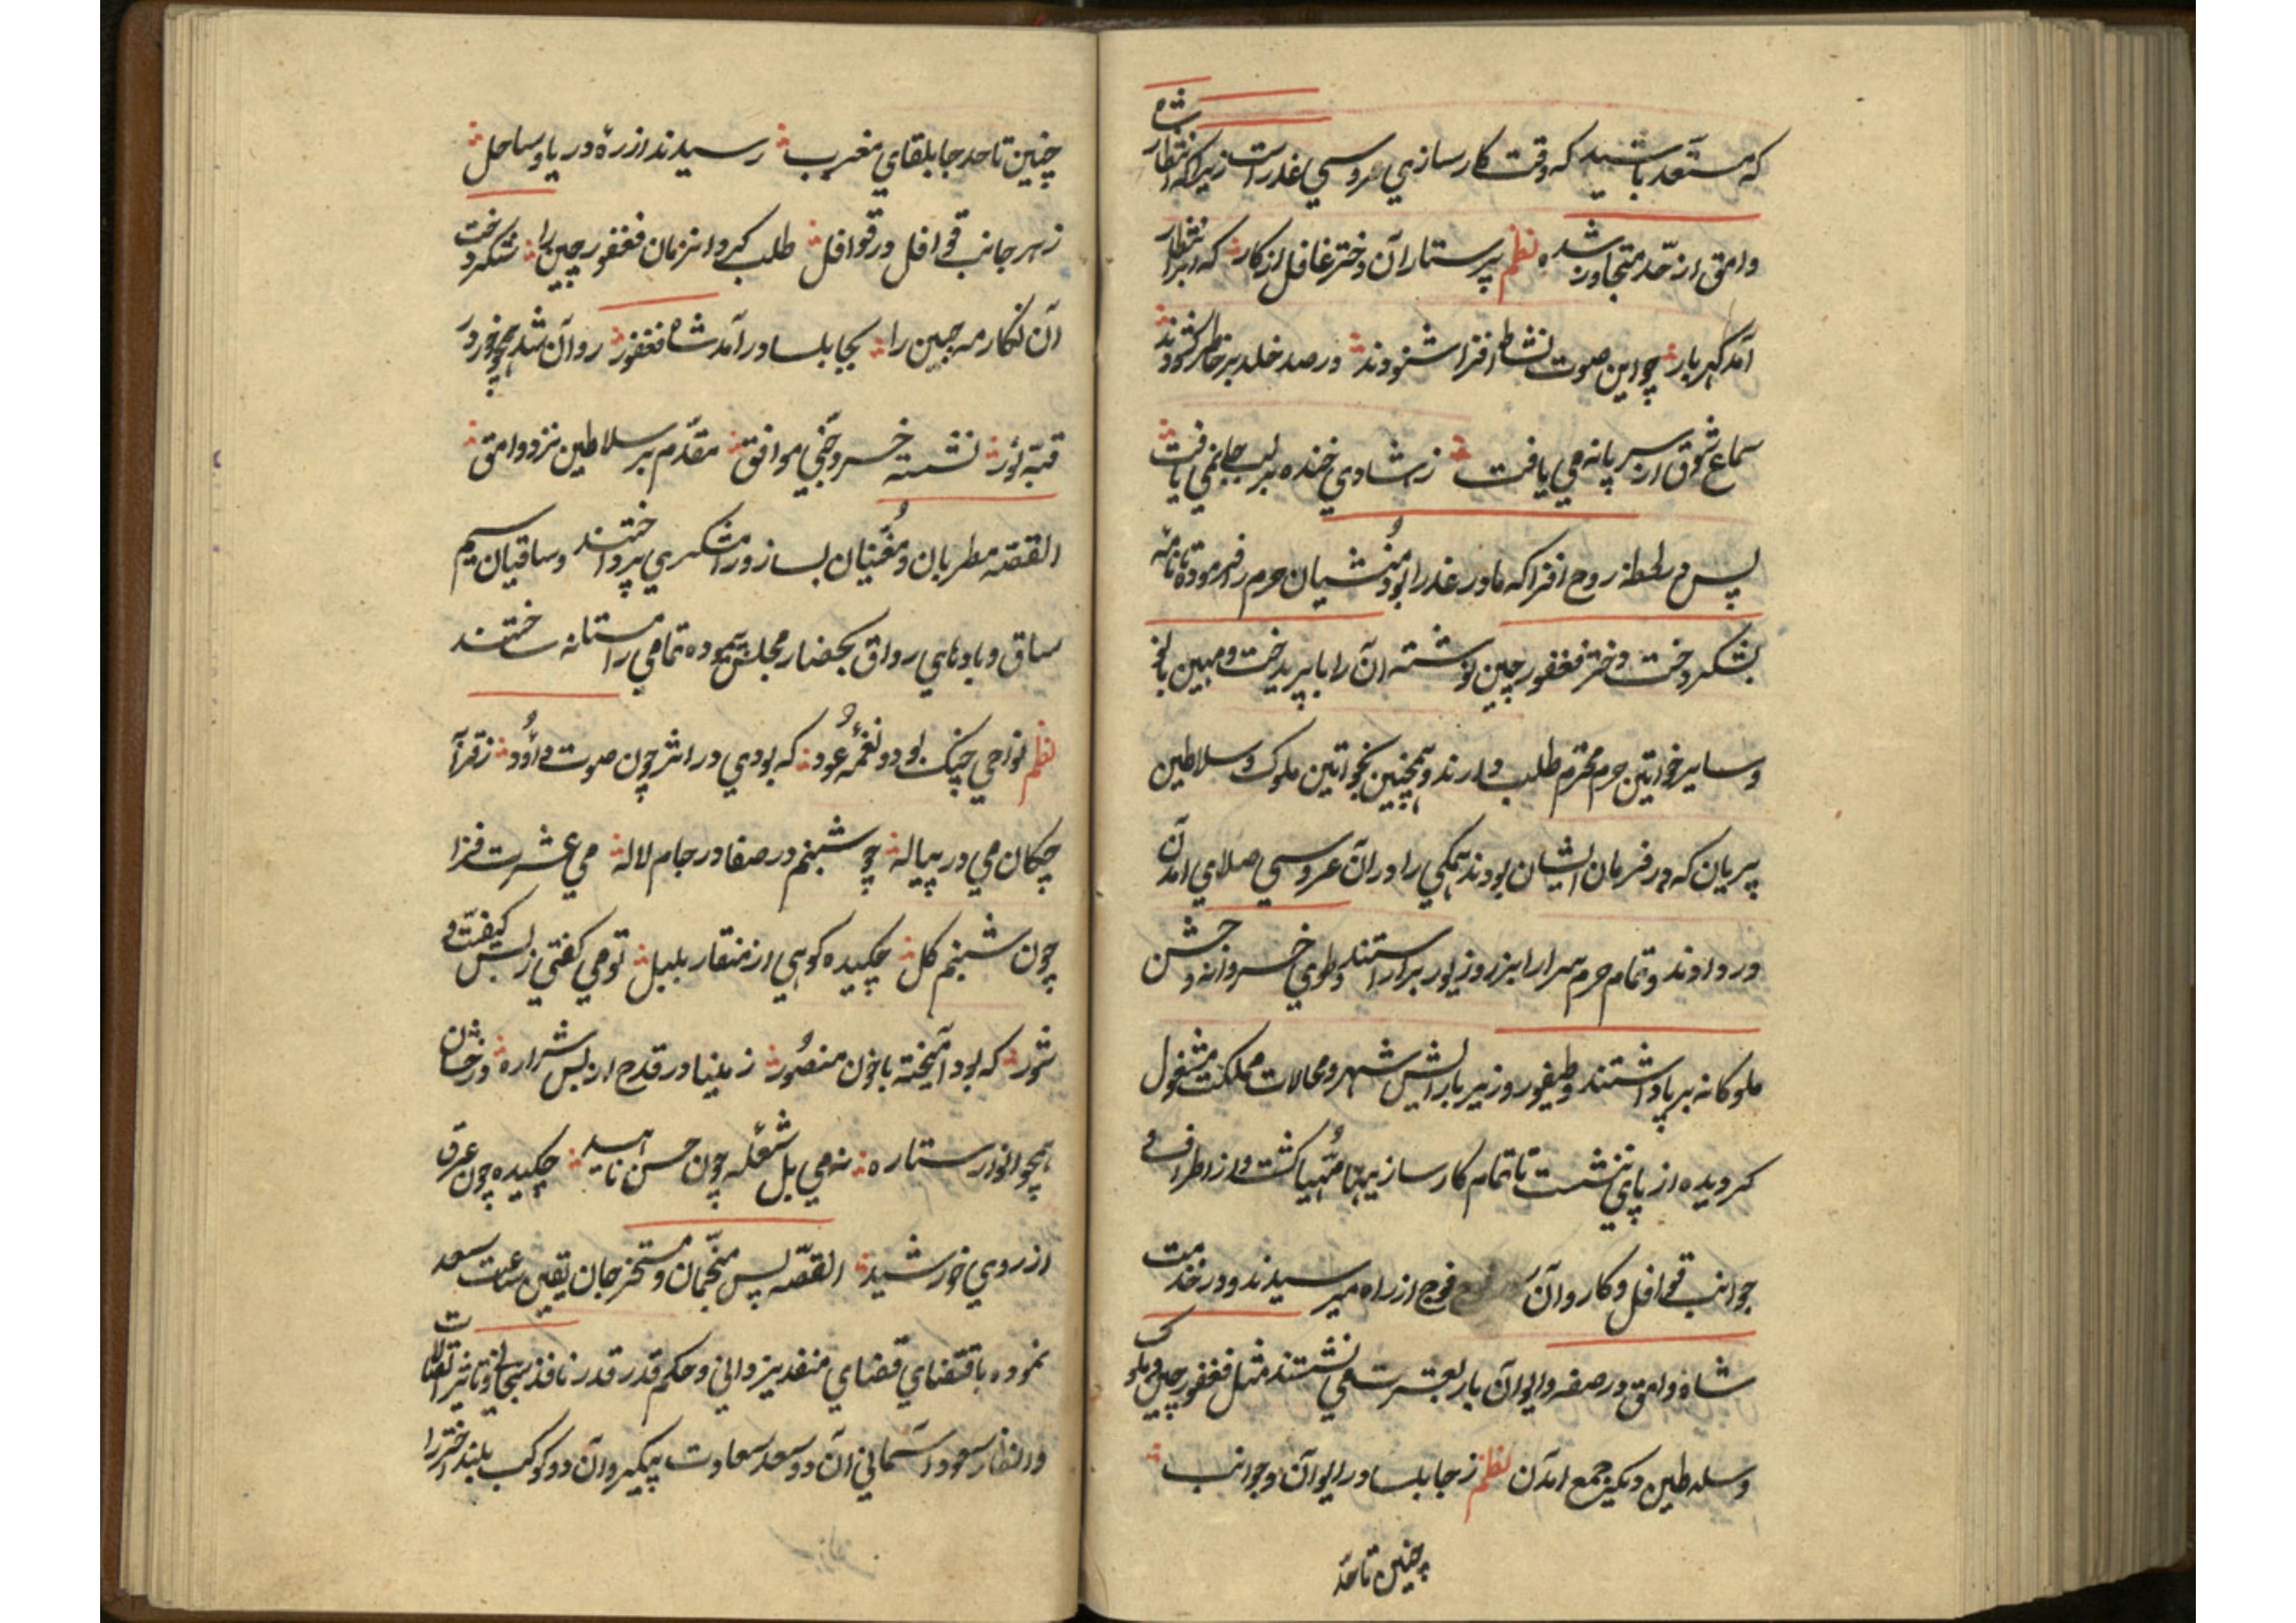 که مستعد باشید که وقت کار سازی عروسی عذراست زیرا که انتظار شاه
وامق از حد متجاوز شده نظم پرستاران دختر غافل از کار که ابر انتظار
آمد گهربار چو این صوت نشاط افزا شنودند در صد خلد بر خاطر گشودند
سماع شوق از سر پا نه می یافت ز شادی خنده بر لب جا نمی یافت
پس در لحظه روح افزا که مادر عذرا بود منشیان حرم را فرموده تا نامه
بشکر دخت دختر فغفور چین نوشته آن را با پریدخت و مهین بانو
و سایر خواتین حرم محترم طلب دارند و همچنین بخواتین ملوک و سلاطین
پریان که در فرمان ایشان بودند همگی را در آن عروسی صلای آمدن
در دادند و تمام حرم سرا را بزر و زیور برآراستند و طوی خسروانه و جشن
ملوکانه برپا داشتند و طیفور وزیر بآرایش شهر و محالات مملکت مشغول
گردیده از پای ننشست تا تمام کارسازیها مهیا گشت و از اطراف و
جوانب قوافل و کاروان فوج از راه میرسیدند و در خدمت
شاه وامق در صفه و ایوان بار بعشرت می نشستند مثل فغفور چین و ملوک
و سلاطین دیگر جمع آمدن نظم ز جابلسا در ایوان و جوانب
چنین تا حد
چنین تا حد جابلقای مغرب رسیدند از ره دریا و ساحل
ز هر جانب قوافل در قوافل طلب کرد انزمان فغفور چین را شکر دخت
آن نگار مه جبین را بجابلسا درآمد شاه فغفور روان شد همچو خور در
قبه نور نشسته خسرو چین موافق مقدم بر سلاطین نزد وامق
القصه مطربان و مغنیان بساز و رامشگری پرداختند و ساقیان سیم
ساق و بادهای رواق بحضار مجلس پیموده تمامی را مستانه ساختند
نظم نوای چنگ بود و نغمه عود که بودی در اثر چون صوت داود ز قرآ
چکان می در پیاله چو شبنم در صفا در جام لاله می عشرت فزا
چون شبنم گل چکیده گوهی از منقار بلبل تو می گفتی ز بس کیفیت و
شور که بود آمیخته با خون منصور ز مینا در قدح از بس شراره درخشان
همچو انوار ستاره نه می بل شعله چون حسن ناهید چکیده چون عرق
از روی خورشید القصه پس منجمان و مستخرجان تعین ساعت سعد
نموده باقتضای قضای منفذ یزدانی و حکم قدر قدر نافذ سبحانی و تاثیر اتصالات
و انظار سعود آسمانی آن دو سعد سعادت پیکر و آن دو کوکب بلند اختر را